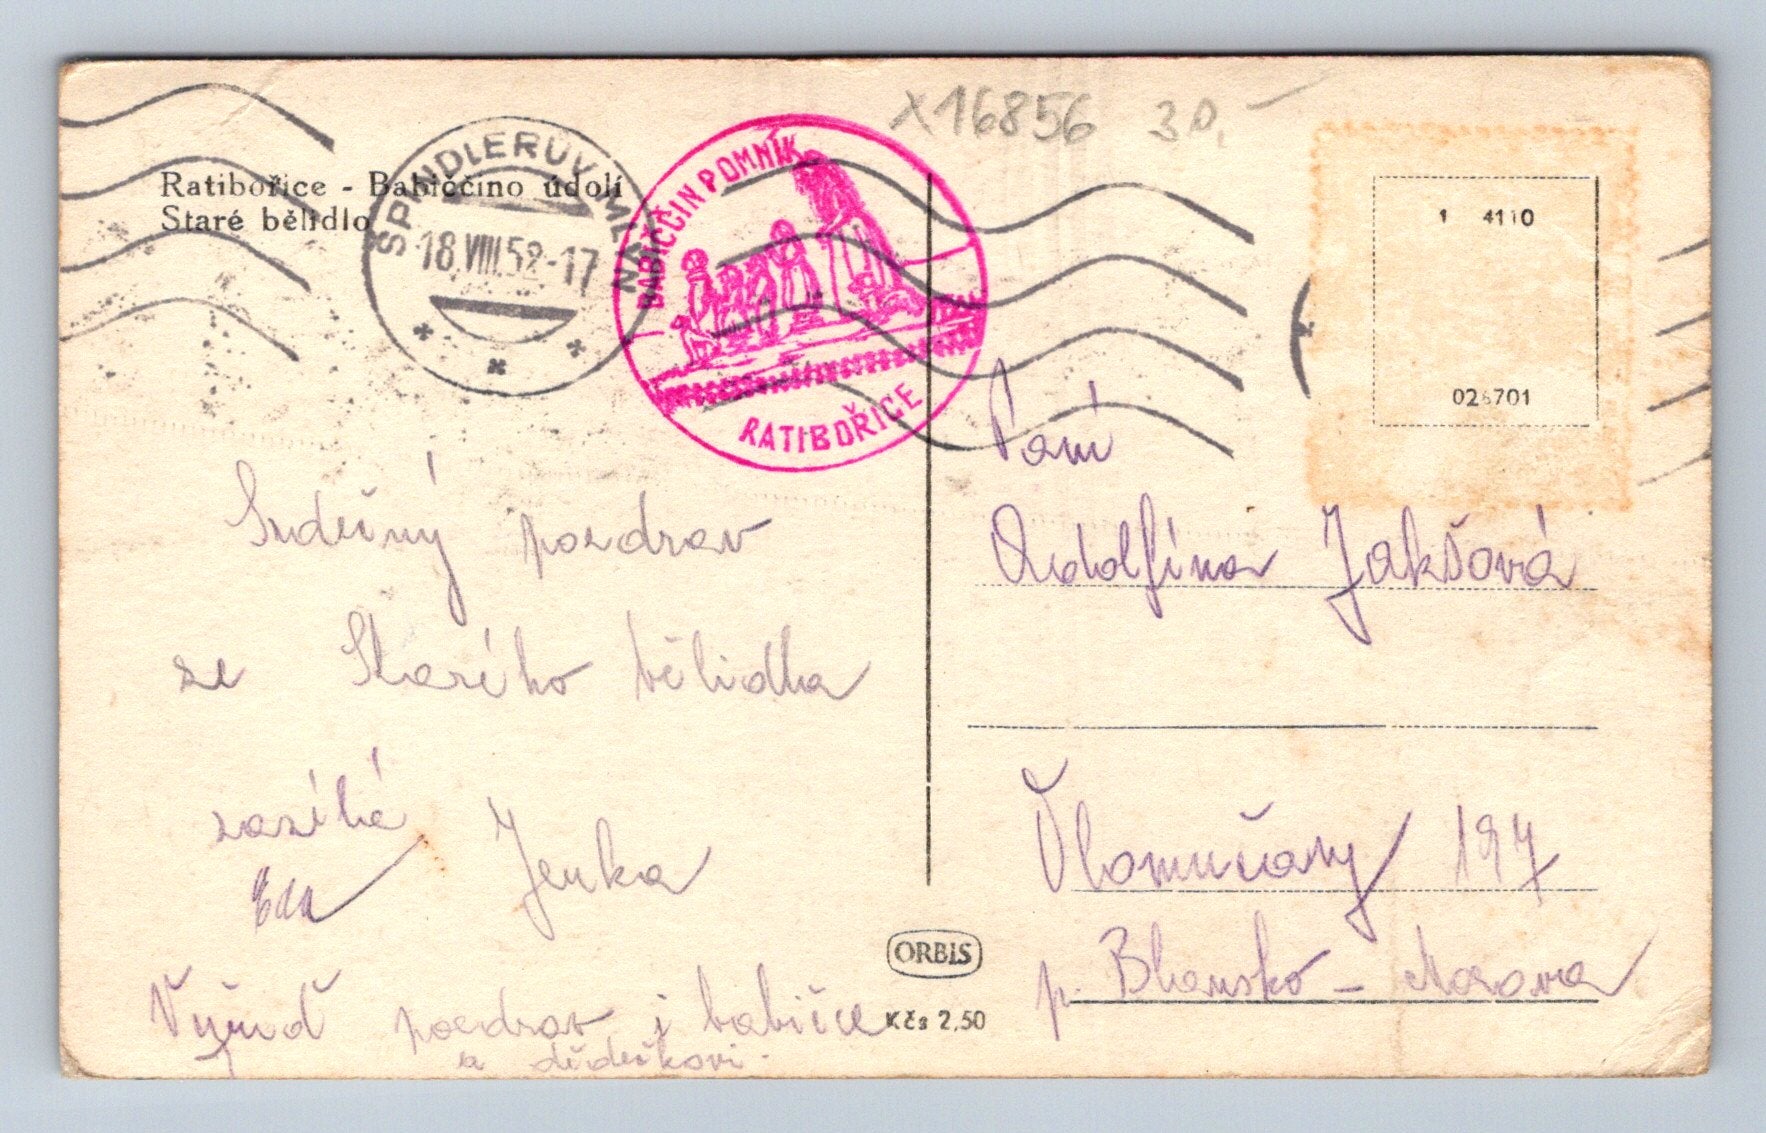 x16856 30.-
Ratibořice - Babiččino údolí
Staré bělidlo
ŠPINDLERŮV MLÝN
18.VIII.52-17
BABIČČIN POMNÍK
RATIBOŘICE
1 4110
026701
Srdečný pozdrav
ze Starého bělidla
zasílá
Jenka
Vyřiď pozdrav i babičce
a dědečkovi.
Paní
Adolfína Jakšová
Olomučany 197
p. Blansko - Morava
ORBIS
Kčs 2,50